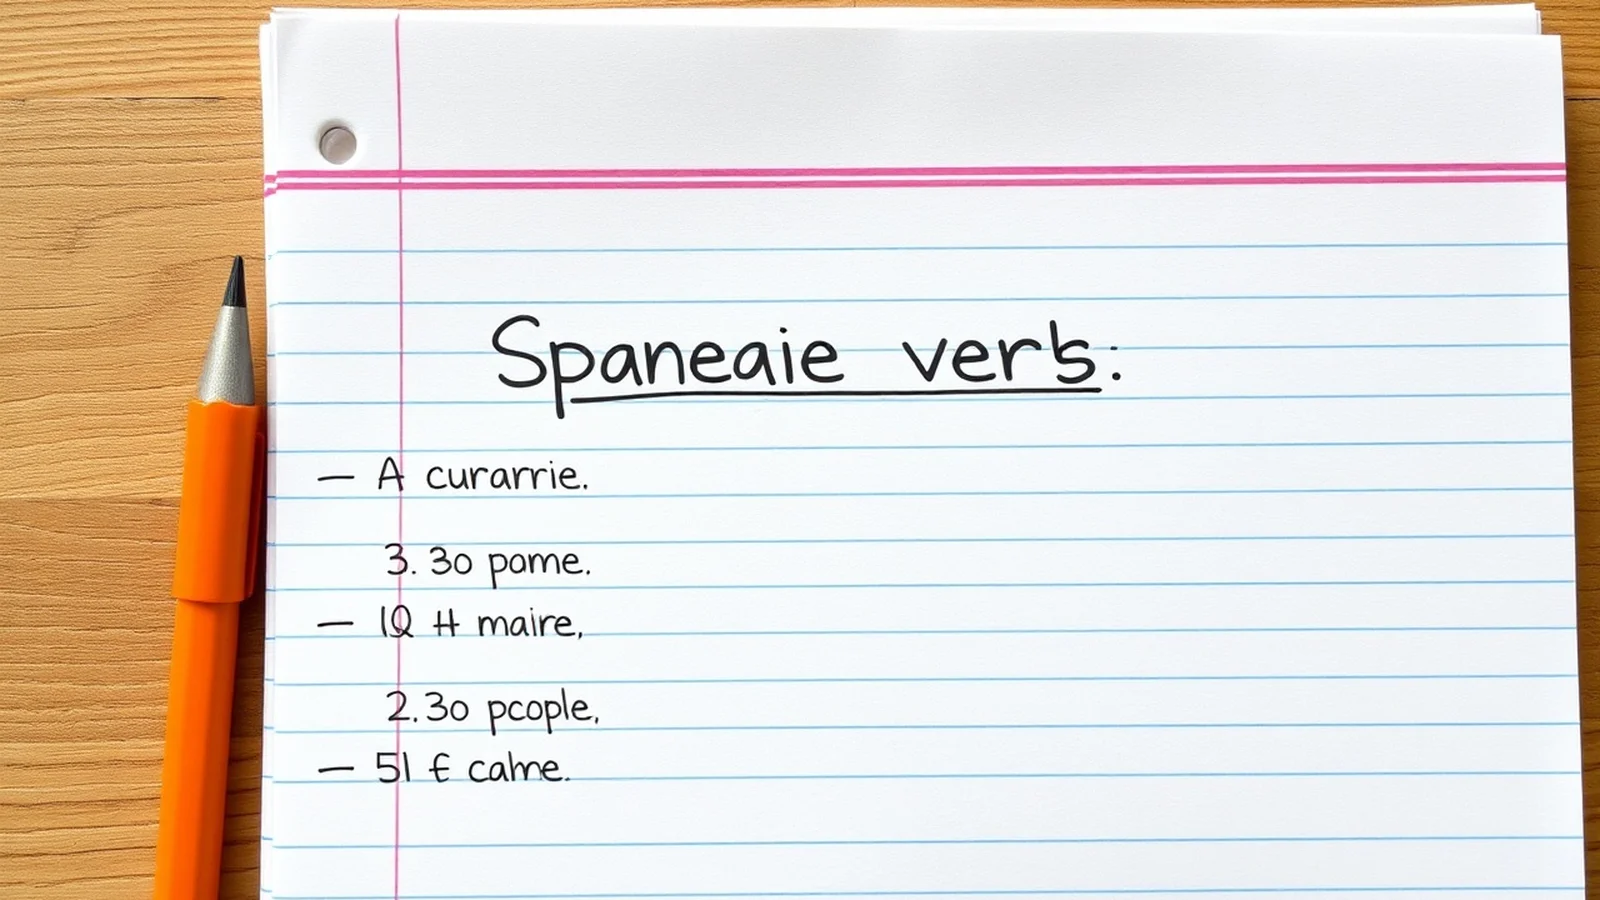 Spaneaie verb:
— A curarrie.
3. 30 pame.
— IQ H maire,
2. 30 pcople,
— 51 € calme.